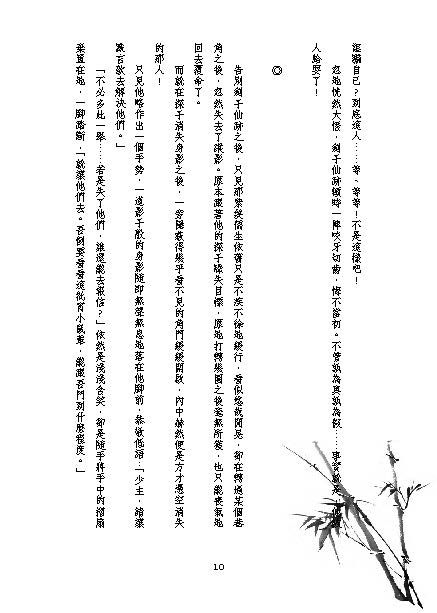 誆騙自己？到底這人……等、等等！不是這樣吧！
忽地恍然大悟，劍千仙跡頓時一陣咬牙切齒，悔不當初。不管孰為真孰為假……事實就是
人給耍了！
◎
告別劍千仙跡之後，只見那素衫儒生依舊只是不疾不徐地緩行，看似悠哉閒晃，卻在轉過某個巷
角之後，忽然失去了蹤影。原本跟著他的探子驟失目標，原地打轉幾圈之後毫無所獲，也只能喪氣地
回去覆命了。
而就在探子消失身影之後，一旁隱蔽得幾乎看不見的角門緩緩開啟，內中赫然便是方才憑空消失
的那人！
只見他略作出一個手勢，一道影子般的身影隨即無聲無息地落在他腳前，恭敬低語：「少主，請讓
言欲去解決他們。」
「不必多此一舉……若是失了他們，誰還能去報信？」依然是淺淺含笑，卻是隨手將手中的摺扇
棄置在地，一腳踏斷，「就讓他們去。吾倒要看看這
到什麼程度。」
10